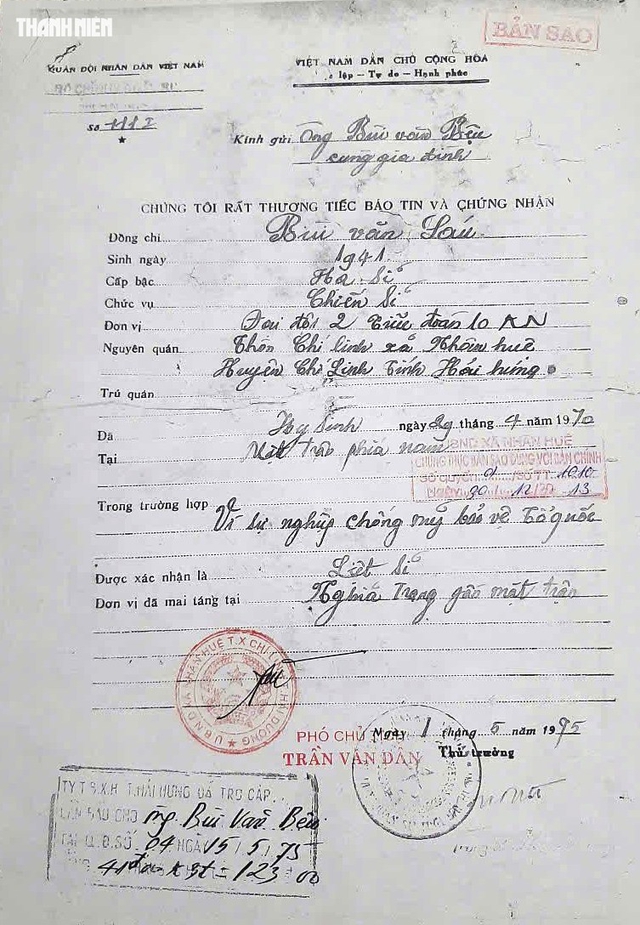 THANH NIÊN
BẢN SAO
QUÂN ĐỘI NHÂN DÂN VIỆT NAM
VIỆT NAM DÂN CHỦ CỘNG HÒA
lập - Tự do - Hạnh phúc
Số
Kính gửi Ông Bùi văn Bệu
cùng gia đình
CHÚNG TÔI RẤT THƯƠNG TIẾC BÁO TIN VÀ CHỨNG NHẬN
Đồng chí Bùi văn Sáu
Sinh ngày 1941
Cấp bậc Hạ Sĩ
Chức vụ Chiến Sĩ
Đơn vị Đại đội 2 Tiểu đoàn 10 KN
Nguyên quán Thôn Chí linh xã Nhân huệ
Huyện Chí Linh Tỉnh Hải hưng
Trú quán
Đã Hy Sinh ngày 29 tháng 4 năm 1970
Tại Mặt trận phía nam
UBND XÃ NHÂN HUỆ
CHỨNG THỰC BẢN SAO ĐÚNG VỚI BẢN CHÍNH
Số quyển 01 /Số TT 1010
Ngày 30 / 12 /20 13
Trong trường hợp Vì sự nghiệp chống mỹ bảo vệ Tổ quốc
Được xác nhận là Liệt Sĩ
Đơn vị đã mai táng tại Nghĩa Trang gần mặt trận
U.B.N.D XÃ NHÂN HUỆ T.X CHÍ HẢI DƯƠNG
PHÓ CHỦ
TRẦN VĂN DÂN
Ngày 1 tháng 5 năm 1975
Thủ trưởng
TY T.B.X.H T. HẢI HƯNG ĐÃ TRỢ CẤP
LẦN SAU CHO Ông Bùi Văn Bệu
TẠI Q.Đ. SỐ 04 NGÀY 15 / 5 / 75